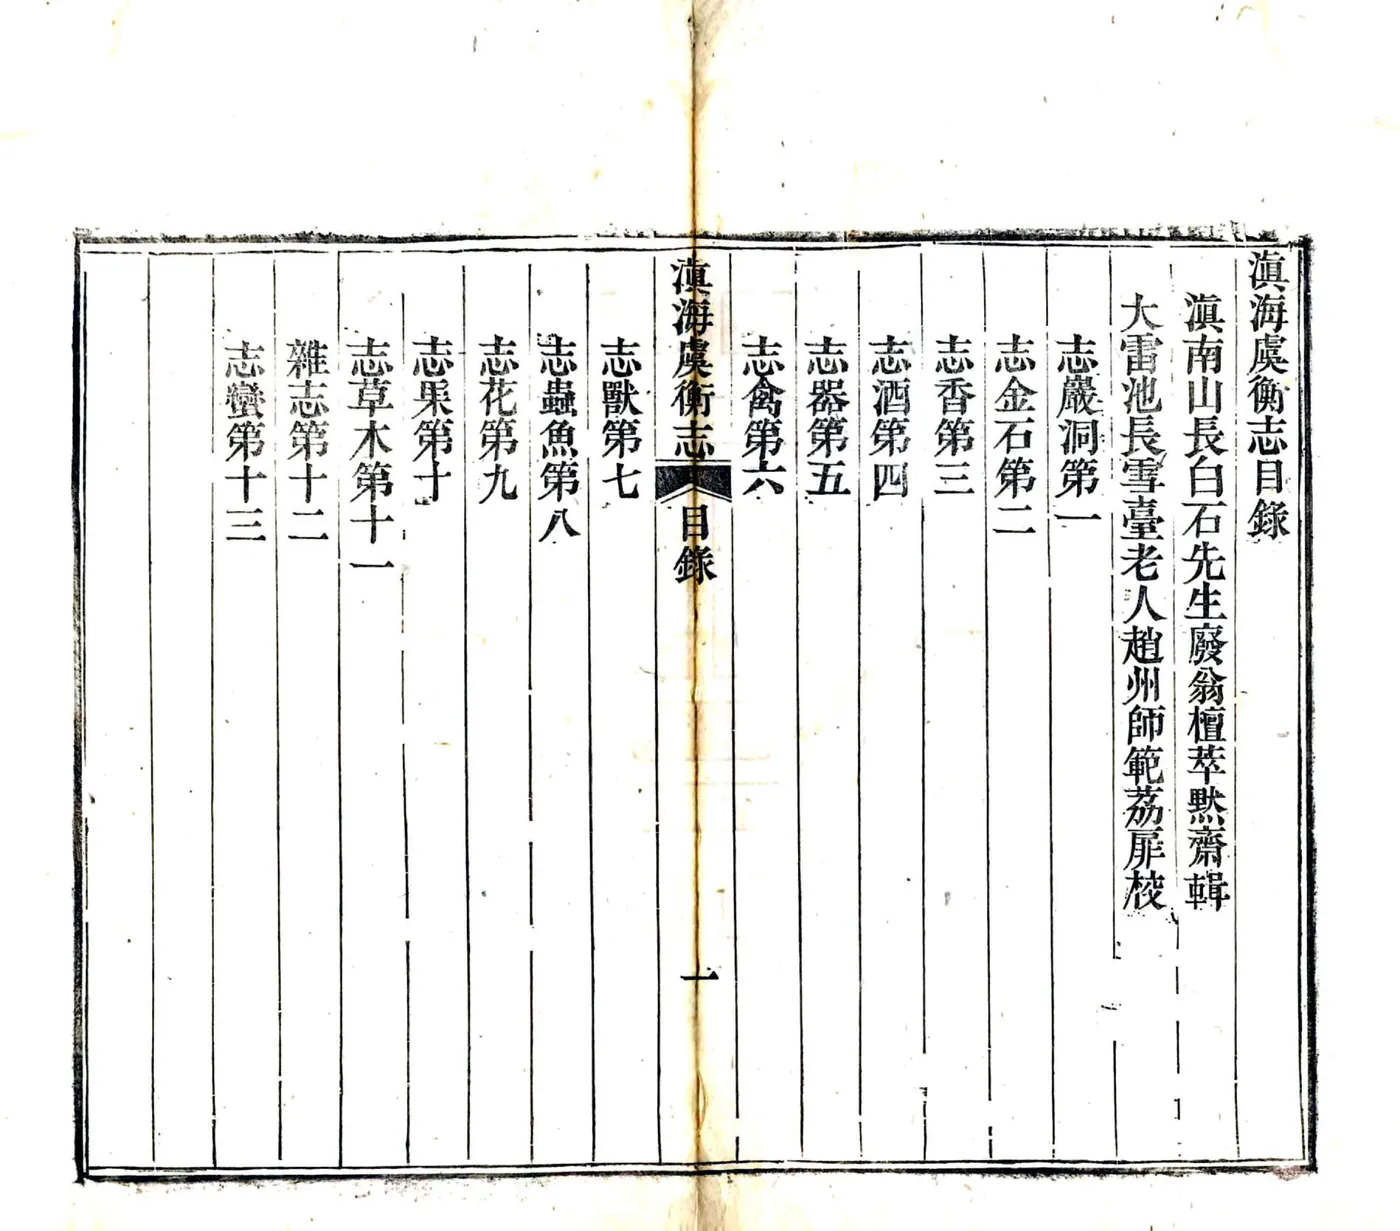 滇海虞衡志目錄
滇南山長白石先生廢翁檀萃默齋輯
大雷池長雪臺老人趙州師範荔扉校
志巖洞第一
志金石第二
志香第三
志酒第四
志器第五
志禽第六
滇海虞衡志 目錄 一
志獸第七
志蟲魚第八
志花第九
志果第十
志草木第十一
雜志第十二
志蠻第十三